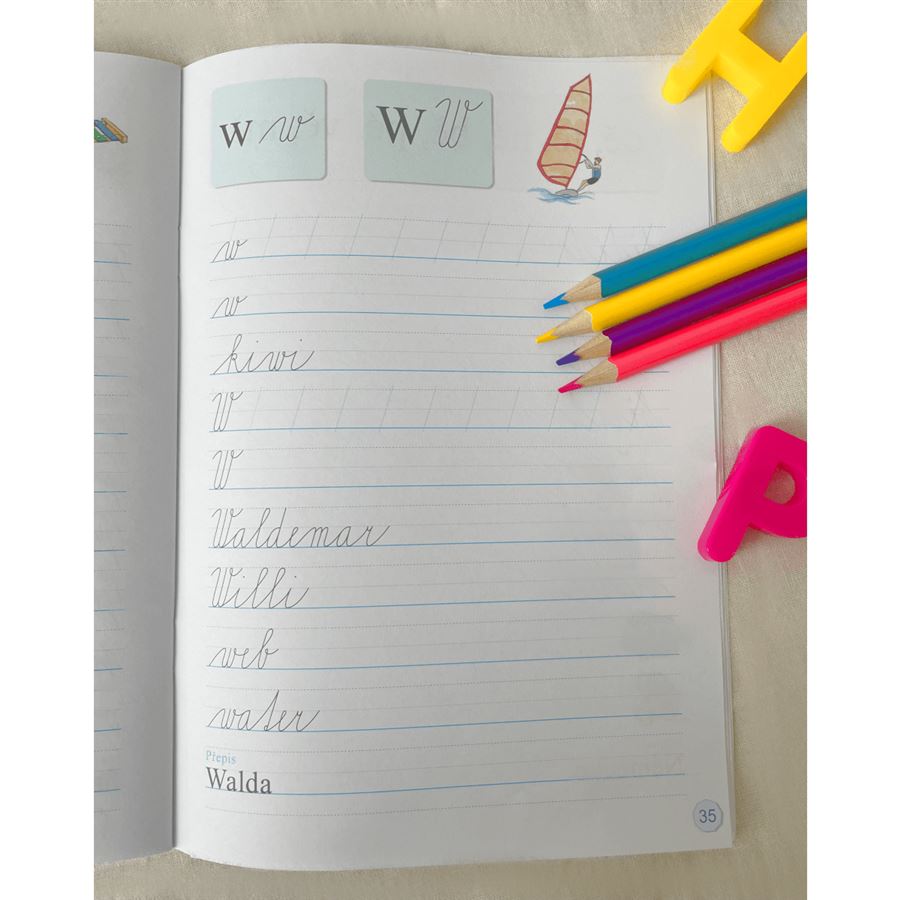 w w W W
w
w
kiwi
W
W
Waldemar
Willi
web
water
Přepis
Walda
35
H
P